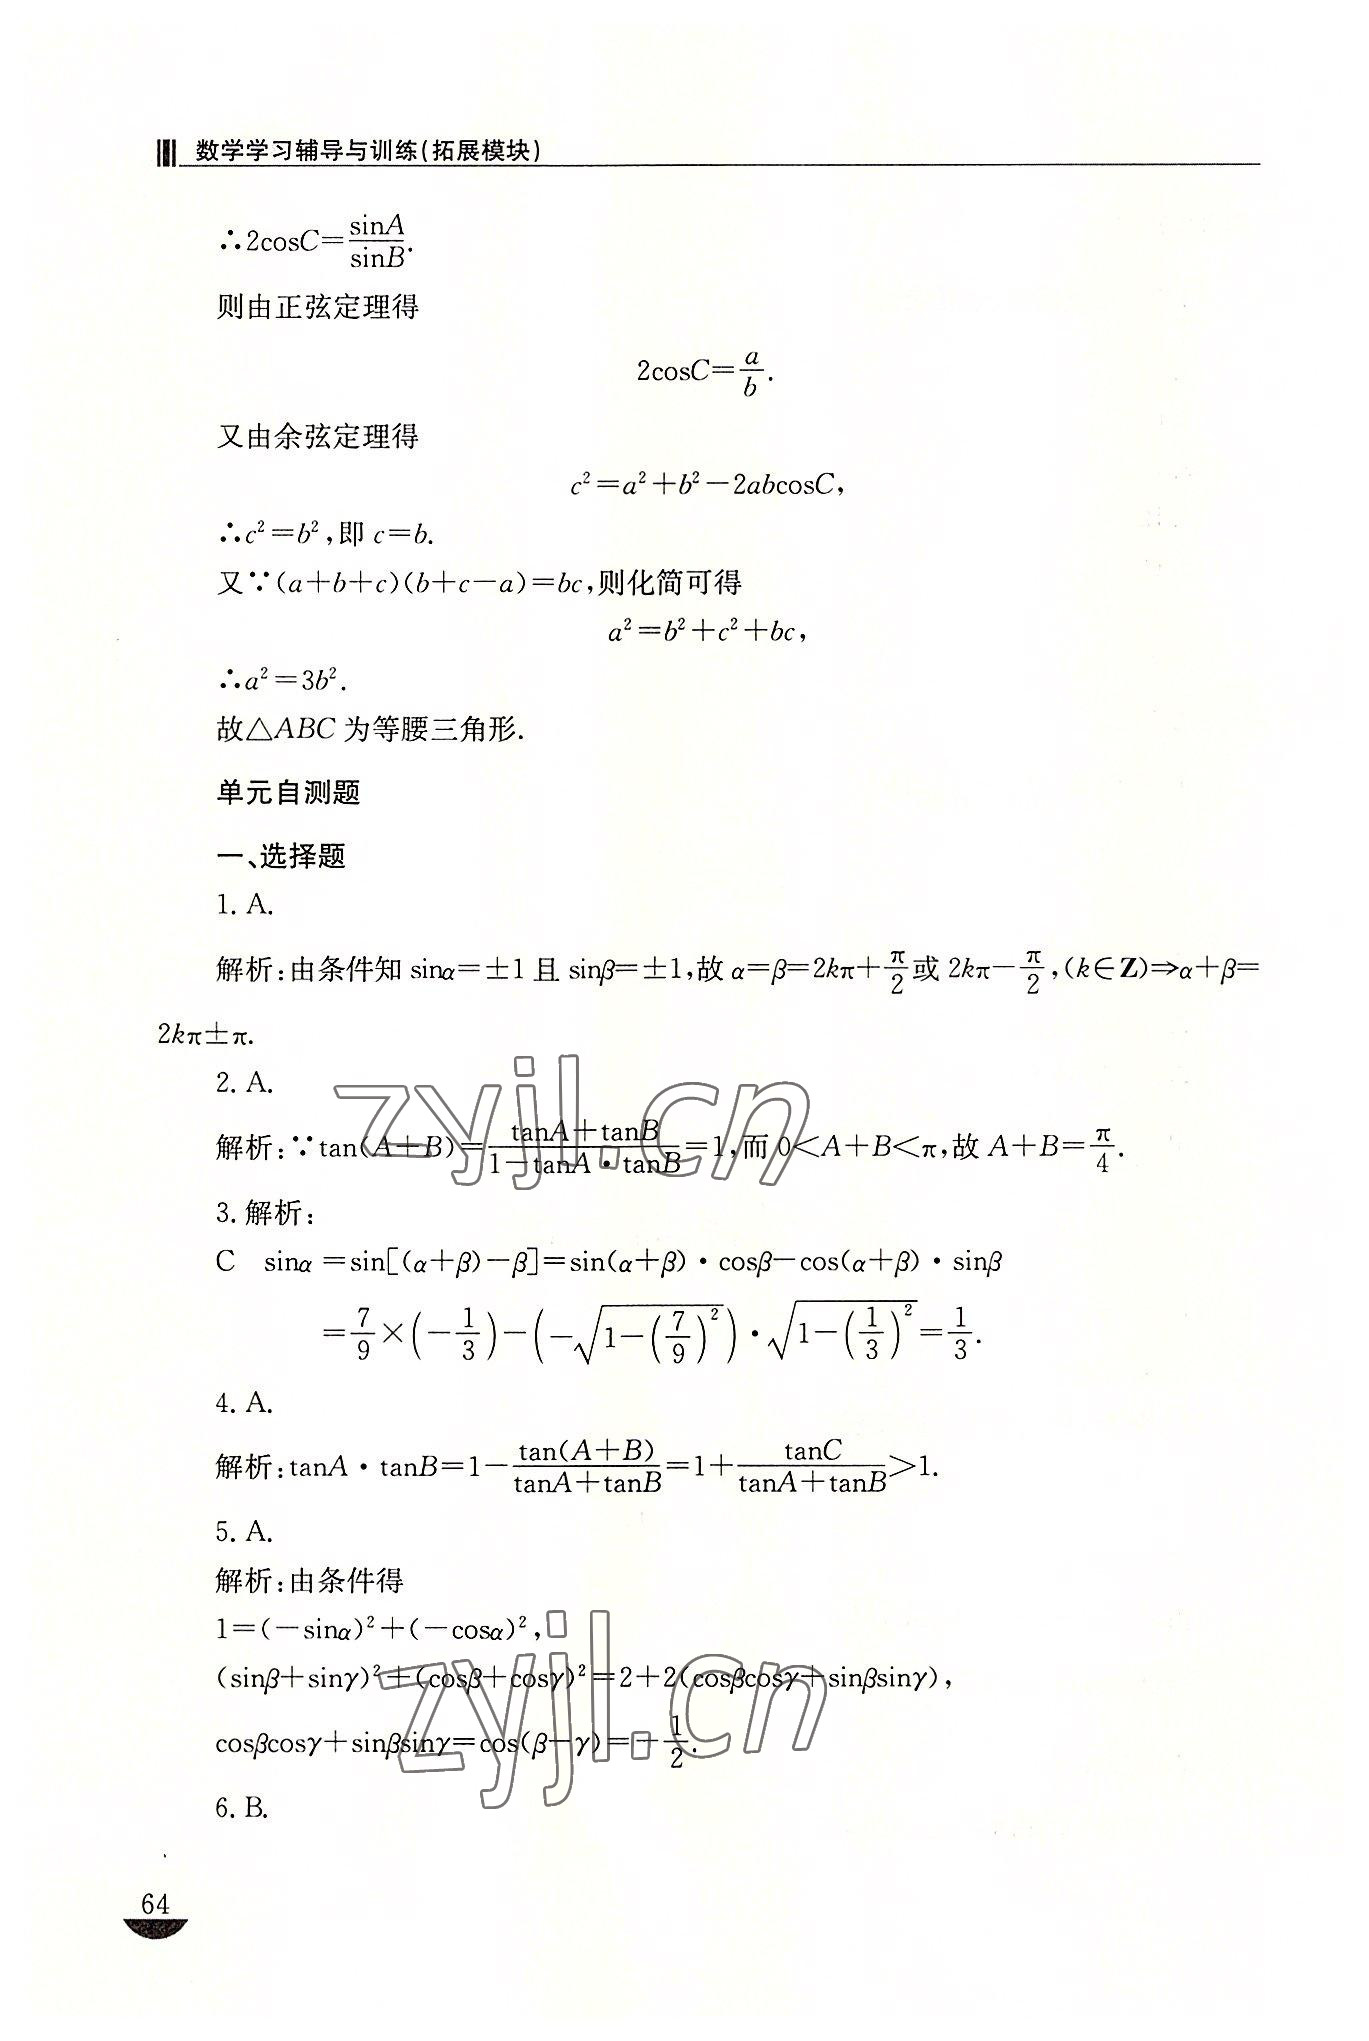 数学学习辅导与训练(拓展模块)
∴2cosC=sinA/sinB.
则由正弦定理得
2cosC=a/b.
又由余弦定理得
c²=a²+b²-2abcosC,
∴c²=b²,即 c=b.
又∵(a+b+c)(b+c-a)=bc,则化简可得
a²=b²+c²+bc,
∴a²=3b².
故△ABC 为等腰三角形.
单元自测题
一、选择题
1. A.
解析:由条件知 sinα=±1 且 sinβ=±1,故 α=β=2kπ+π/2或 2kπ-π/2,(k∈Z)⇒α+β=
2kπ±π.
2. A.
解析:∵tan(A+B)=(tanA+tanB)/(1-tanA·tanB)=1,而 0<A+B<π,故 A+B=π/4.
3.解析:
C sinα=sin[(α+β)-β]=sin(α+β)·cosβ-cos(α+β)·sinβ
=7/9×(-1/3)-(-√(1-(7/9)²))·√(1-(1/3)²)=1/3.
4. A.
解析:tanA·tanB=1-tan(A+B)/(tanA+tanB)=1+tanC/(tanA+tanB)>1.
5. A.
解析:由条件得
1=(-sinα)²+(-cosα)²,
(sinβ+sinγ)²+(cosβ+cosγ)²=2+2(cosβcosγ+sinβsinγ),
cosβcosγ+sinβsinγ=cos(β-γ)=-1/2.
6. B.
64
zyjl.cn
zyjl.cn